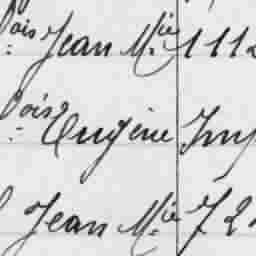 ois Jean Mie 1112
ois Eugène Imp
Jean Mie 72